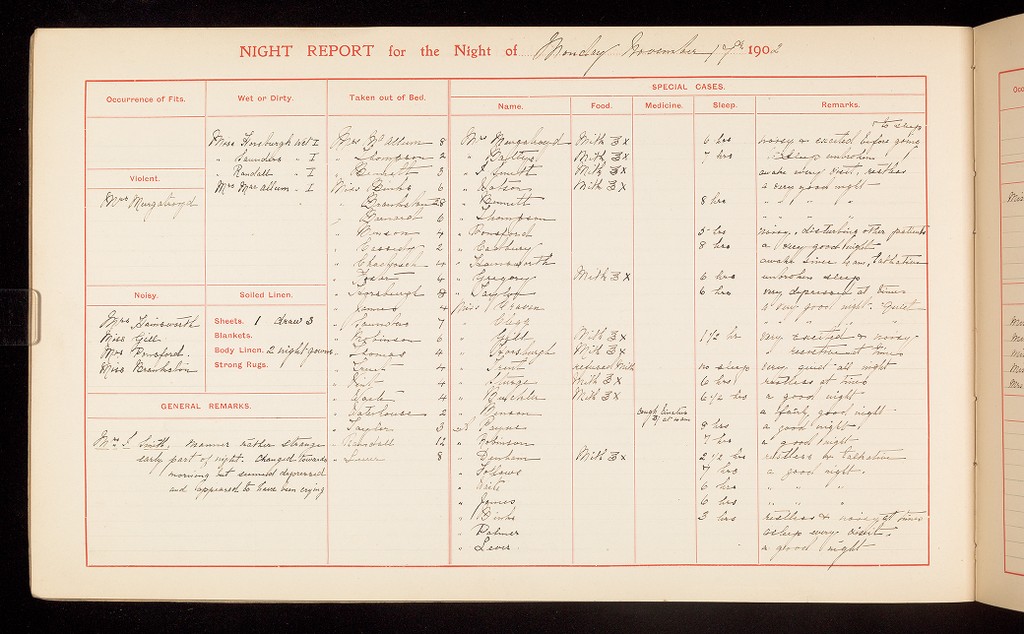 NIGHT REPORT for the Night of Monday November 17th 1902
Occurrence of Fits.
Violent.
Mrs Murgatroyd
Noisy.
Mrs Hainsworth
Miss Gell
Mrs Ponsford.
Miss Brankston
Wet or Dirty.
Miss Horsburgh wet I
" Saunders " I
" Randall " I
Mrs MacCallum " I
Soiled Linen.
Sheets. 1 draw 3
Blankets.
Body Linen. 2 night gowns
Strong Rugs.
GENERAL REMARKS.
Mrs J. Smith. Manner rather strange
early part of night. Changed towards
morning but seemed depressed
and appeared to have been crying
Taken out of Bed.
Mrs McCallum 8
" Thompson 2
" Bennett 3
Miss Binks 6
" Brankston 28
" Barnard 6
" Benson 4
" Cassidy 2
" 4
" 4
" Horsburgh 8
" James 4
" Saunders 7
" Robinson 6
" Thomas 4
" 4
" 4
" 4
" Waterhouse 2
" Taylor 3
" Randall 12
" Lever 8
SPECIAL CASES.
Name. Food. Medicine. Sleep. Remarks.
to sleep
Mrs Murgatroyd Milk 3 x 6 hrs noisy & excited before going
" Milk 3 x 7 hrs sleep unbroken
" J Smith Milk 3 x awake every visit, restless
" Milk 3 x a very good night
" Bennett 8 hrs " " "
" Thompson " " "
" Ponsford 5 hrs noisy, disturbing other patients
" 8 hrs a very good night
" Hainsworth awake since 4 am, talkative
" Gregory Milk 3 x 6 hrs unbroken sleep
" Taylor 6 hrs very depressed at times
Miss a very good night. Quiet
" Clegg " " "
" Milk 3 x 1½ hrs very excited & noisy
" Horsburgh Milk 3 x " restless at times
" refused Milk no sleep very quiet all night
" Sturge Milk 3 x 6 hrs restless at times
" Milk 3 x 6½ hrs a good night
" Benson Cough at 10am a fairly good night
" Payne 8 hrs a good night
" Robinson 7 hrs a good night
" Denham Milk 3 x 2½ hrs restless & talkative
" Follows 7 hrs a good night.
" 6 hrs " " "
" James 6 hrs " " "
" Binks 3 hrs restless & noisy at times
" Palmer asleep every visit.
" Lever. a good night